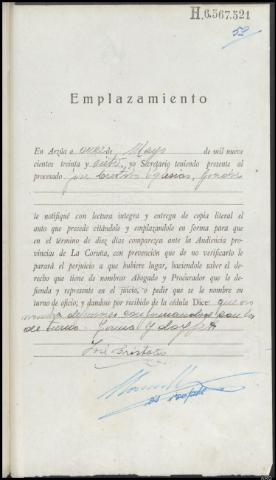 H.6.567.521
52
Emplazamiento
En Arzúa a once de Mayo de mil nueve
cientos treinta y ocho, yo Secretario teniendo presente al
procesado José Cristobo Iglesias,
le notifiqué con lectura íntegra y entrega de copia literal el
auto que precede citándole y emplazándole en forma para que
en el término de diez días comparezca ante la Audiencia pro-
vincial de La Coruña, con prevención que de no verificarlo le
parará el perjuicio a que hubiere lugar, haciéndole saber el dere-
cho que tiene de nombrar Abogado y Procurador que le de-
fienda y represente en el juicio, o pedir que se le nombre en
turno de oficio; y dándose por recibido de la cédula Dice: que no
nombra defensores conformandose con los
de turno. Firma y doy fé
José Cristobo